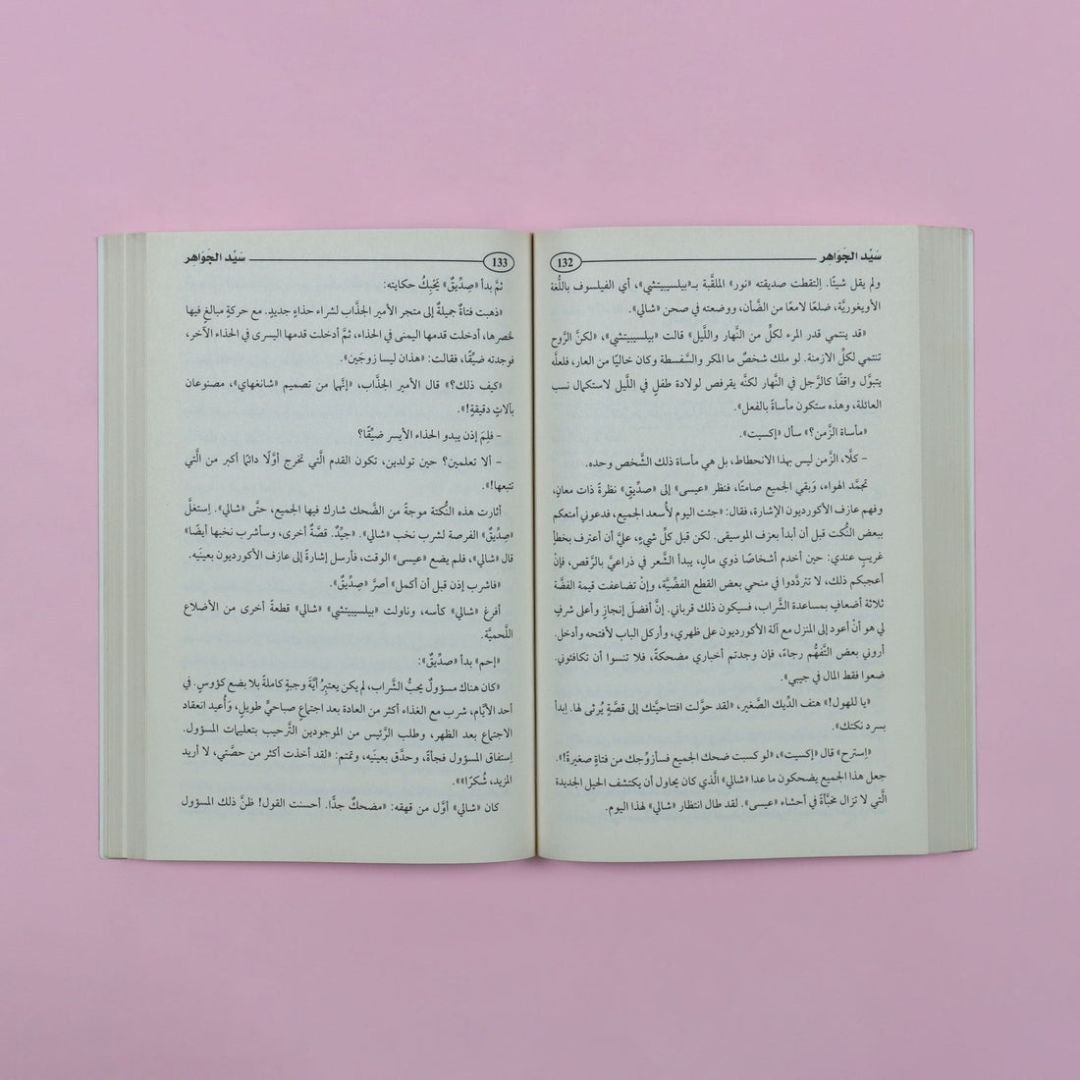 سَيِّد الجَوَاهِر 132
ولم يقل شيئًا. اِلتقطت صديقته «نور» الملقَّبة بـ«بيلسيبيتشي»، أي الفيلسوف باللُّغة
الأويغوريَّة، ضلعًا لامعًا من الضَّأن، ووضعته في صحن «شالي».
«قد ينتمي قدر المرء لكلٍّ من النَّهار واللَّيل» قالت «بيلسيبيتشي»، «لكنَّ الرُّوح
تنتمي لكلِّ الازمنة. لو ملك شخصٌ ما المكر والسَّفسطة وكان خاليًا من العار، فلعلَّه
يتبوَّل واقفًا كالرَّجل في النَّهار لكنَّه يقرفص لولادة طفلٍ في اللَّيل لاستكمال نسب
العائلة، وهذه ستكون مأساةً بالفعل».
«مأساة الزَّمن؟» سأل «إكسيت».
- كلَّا، الزَّمن ليس بهذا الانحطاط، بل هي مأساة ذلك الشَّخص وحده.
تجمَّد الهواء، وَبقي الجميع صامتًا، فنظر «عيسى» إلى «صدِّيقٍ» نظرةً ذات معانٍ،
وفهم عازف الأكورديون الإشارة، فقال: «جئت اليوم لأُسعد الجميع، فدعوني أمتعكم
ببعض النُّكت قبل أن أبدأ بعزف الموسيقى. لكن قبل كلِّ شيءٍ، عليَّ أن أعترف بخطأٍ
غريبٍ عندي: حين أخدم أشخاصًا ذوي مالٍ، يبدأ الشَّعر في ذراعيَّ بالرَّقص، فإنْ
أعجبكم ذلك، لا تتردَّدوا في منحي بعض القطع الفضِّيَّة، وإنْ تضاعفت قيمة الفضَّة
ثلاثة أضعافٍ بمساعدة الشَّراب، فسيكون ذلك قرباني. إنَّ أفضلَ إنجازٍ وأعلى شرفٍ
لي هو أنْ أعود إلى المنزل مع آلة الأكورديون على ظهري، وأركل الباب لأفتحه وأدخل.
أروني بعض التَّفهُّم رجاءً، فإن وجدتم أخباري مضحكةً، فلا تنسوا أن تكافئوني.
ضعوا فقط المال في جيبي».
«يا للهول!» هتف الدِّيك الصَّغير، «لقد حوَّلت افتتاحيَّتك إلى قصَّةٍ يُرثى لها. اِبدأ
بسرد نكتك».
«اِسترح» قال «إكسيت»، «لو كسبت ضحك الجميع فسأزوِّجك من فتاةٍ صغيرةٍ!».
جعل هذا الجميع يضحكون ما عدا «شالي» الَّذي كان يحاول أن يكتشف الحيل الجديدة
الَّتي لا تزال مخبَّأةً في أحشاء «عيسى». لقد طال انتظار «شالي» لهذا اليوم.
133 سَيِّد الجَوَاهِر
ثمَّ بدأ «صِدِّيقٌ» يَحْبِكُ حكايته:
«ذهبت فتاةٌ جميلةٌ إلى متجر الأمير الجذَّاب لشراء حذاءٍ جديدٍ. مع حركةٍ مبالغٍ فيها
لخصرها، أدخلت قدمها اليمنى في الحذاء، ثمَّ أدخلت قدمها اليسرى في الحذاء الآخر،
فوجدته ضيِّقًا، فقالت: «هذان ليسا زوجَين».
«كيف ذلك؟» قال الأمير الجذَّاب، «إنَّهما من تصميم «شانغهاي»، مصنوعان
بآلاتٍ دقيقةٍ!».
- فلِمَ إذن يبدو الحذاء الأيسر ضيِّقًا؟
- ألا تعلمين؟ حين تولدين، تكون القدم الَّتي تخرج أوَّلًا دائمًا أكبر من الَّتي
تتبعها!».
أثارت هذه النُّكتة موجةً من الضَّحك شارك فيها الجميع، حتَّى «شالي». اِستغلَّ
«صِدِّيقٌ» الفرصة لشرب نخب «شالي». «جيِّدٌ. قصَّةٌ أخرى، وسأشرب نخبها أيضًا»
قال «شالي»، فلم يضع «عيسى» الوقت، فأرسل إشارةً إلى عازف الأكورديون بعينَيه.
«فاشرب إذن قبل أن أكمل» أصرَّ «صِدِّيقٌ».
أفرغ «شالي» كأسه، وناولت «بيلسيبيتشي» «شالي» قطعةً أخرى من الأضلاع
اللَّحميَّة.
«اِحم» بدأ «صدِّيقٌ»:
«كان هناك مسؤولٌ يحبُّ الشَّراب، لم يكن يعتبِرُ أيَّةَ وجبةٍ كاملةً بلا بضع كؤوسٍ. في
أحد الأيَّام، شرب مع الغذاء أكثر من العادة بعد اجتماعٍ صباحيٍّ طويلٍ، وَأُعيد انعقاد
الاجتماع بعد الظهر، وطلب الرَّئيس من الموجودين التَّرحيب بتعليمات المسؤول.
اِستفاق المسؤول فجأةً، وحدَّق بعينَيه، وتمتم: «لقد أخذت أكثر من حصَّتي، لا أريد
المزيد، شُكرًا»».
كان «شالي» أوَّل من قهقه: «مضحكٌ جدًّا. أحسنت القول! ظنَّ ذلك المسؤول